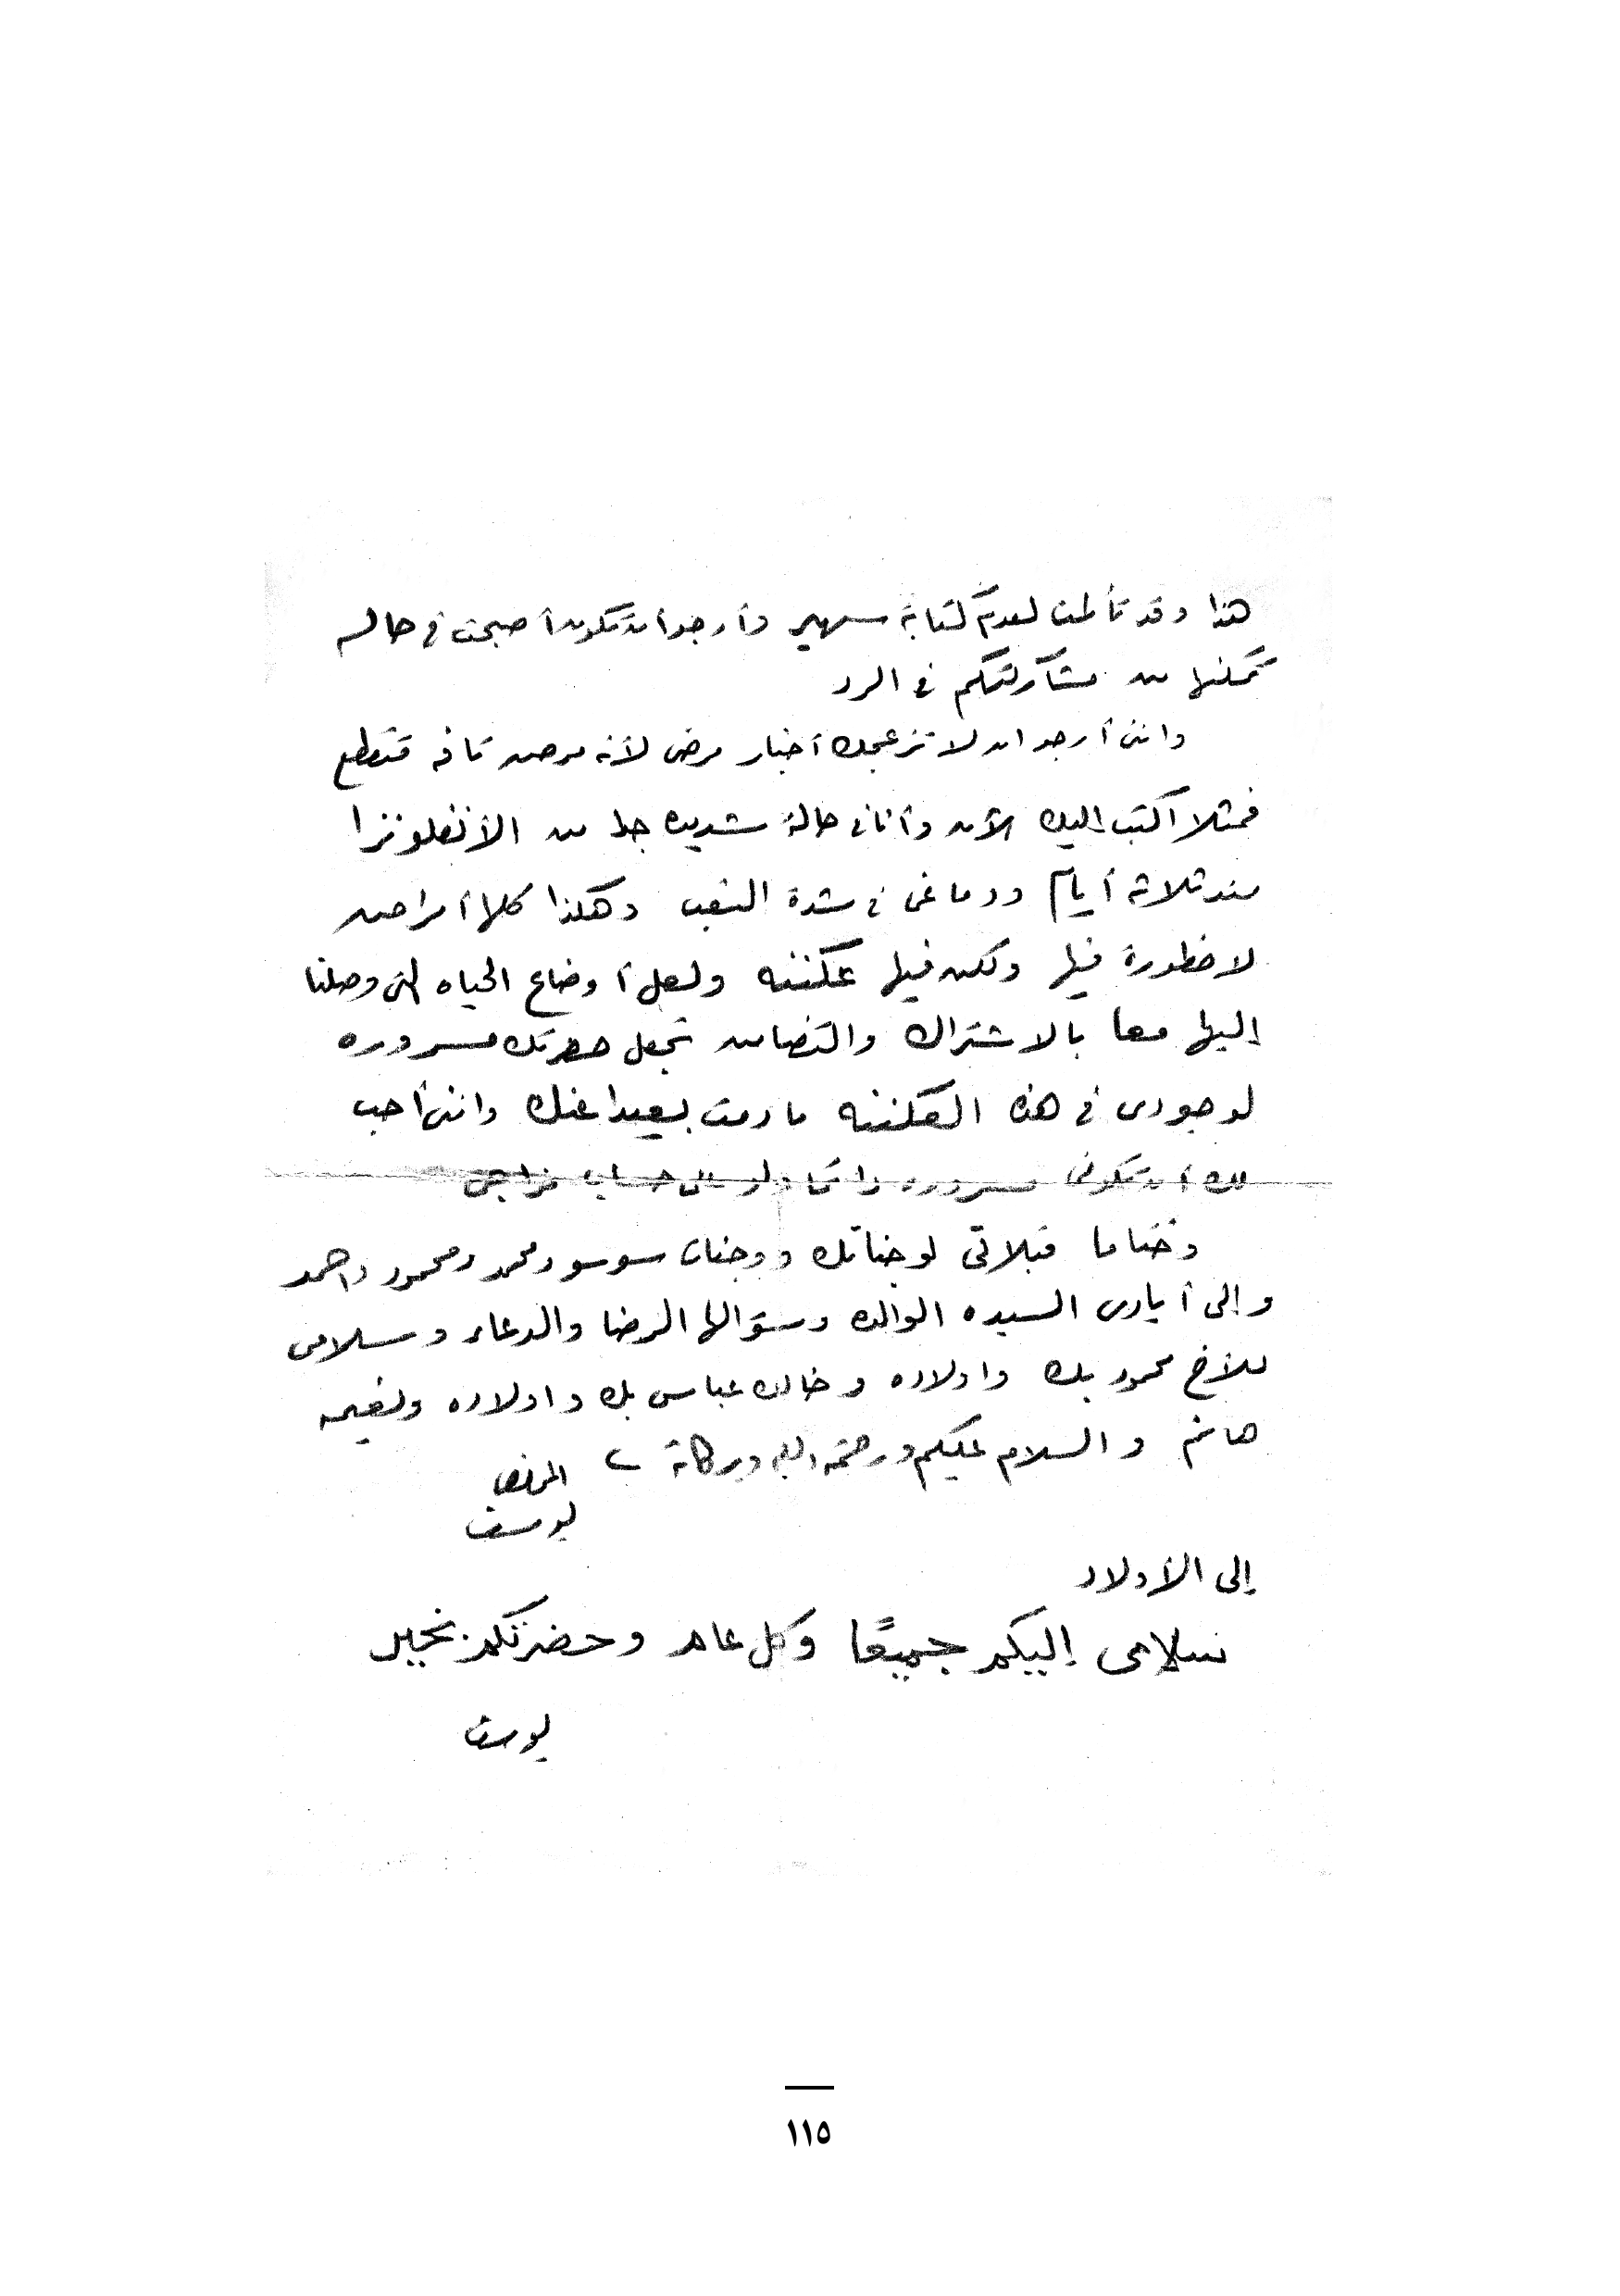 هذا وقد تألمت لعدم كتابة سهير وأرجو أن تكون أصبحت في حاله
تمكنها من مشاركتكم في الرد
وانني أرجو ان لا تزعجك أخبار مرضى لأنه مرض تافه فقط
فمثلا أكتب إليك الآن وأنا في حالة شديده جدا من الأنفلونزا
منذ ثلاثة أيام ودماغى في شدة التعب وهكذا كلها أمراض
لا خطورة فيها ولكن فيها عكننه ولعل أوضاع الحياه التى وصلنا
إليها معا بالاشتراك والتضامن تجعل حضرتك مسروره
لوجودى في هذه العكننه ما دمت بعيدا عنك وانني أحب
لك أن تكونى مسروره دائما ولو على حساب مزاجى
وختاما قبلاتى لوجناتك ووجنات سوسو ومحمد ومحمود واحمد
وإلى أيادى السيده الوالده وسؤالها الرضا والدعاء وسلامى
للأخ محمود بك واولاده وخالك عباس بك واولاده ونعيمه
هانم والسلام عليكم ورحمة الله وبركاته
المخلص
يوسف
إلى الأولاد
سلامى إليكم جميعًا وكل عام وحضرتكم بخير
يوسف
١١٥